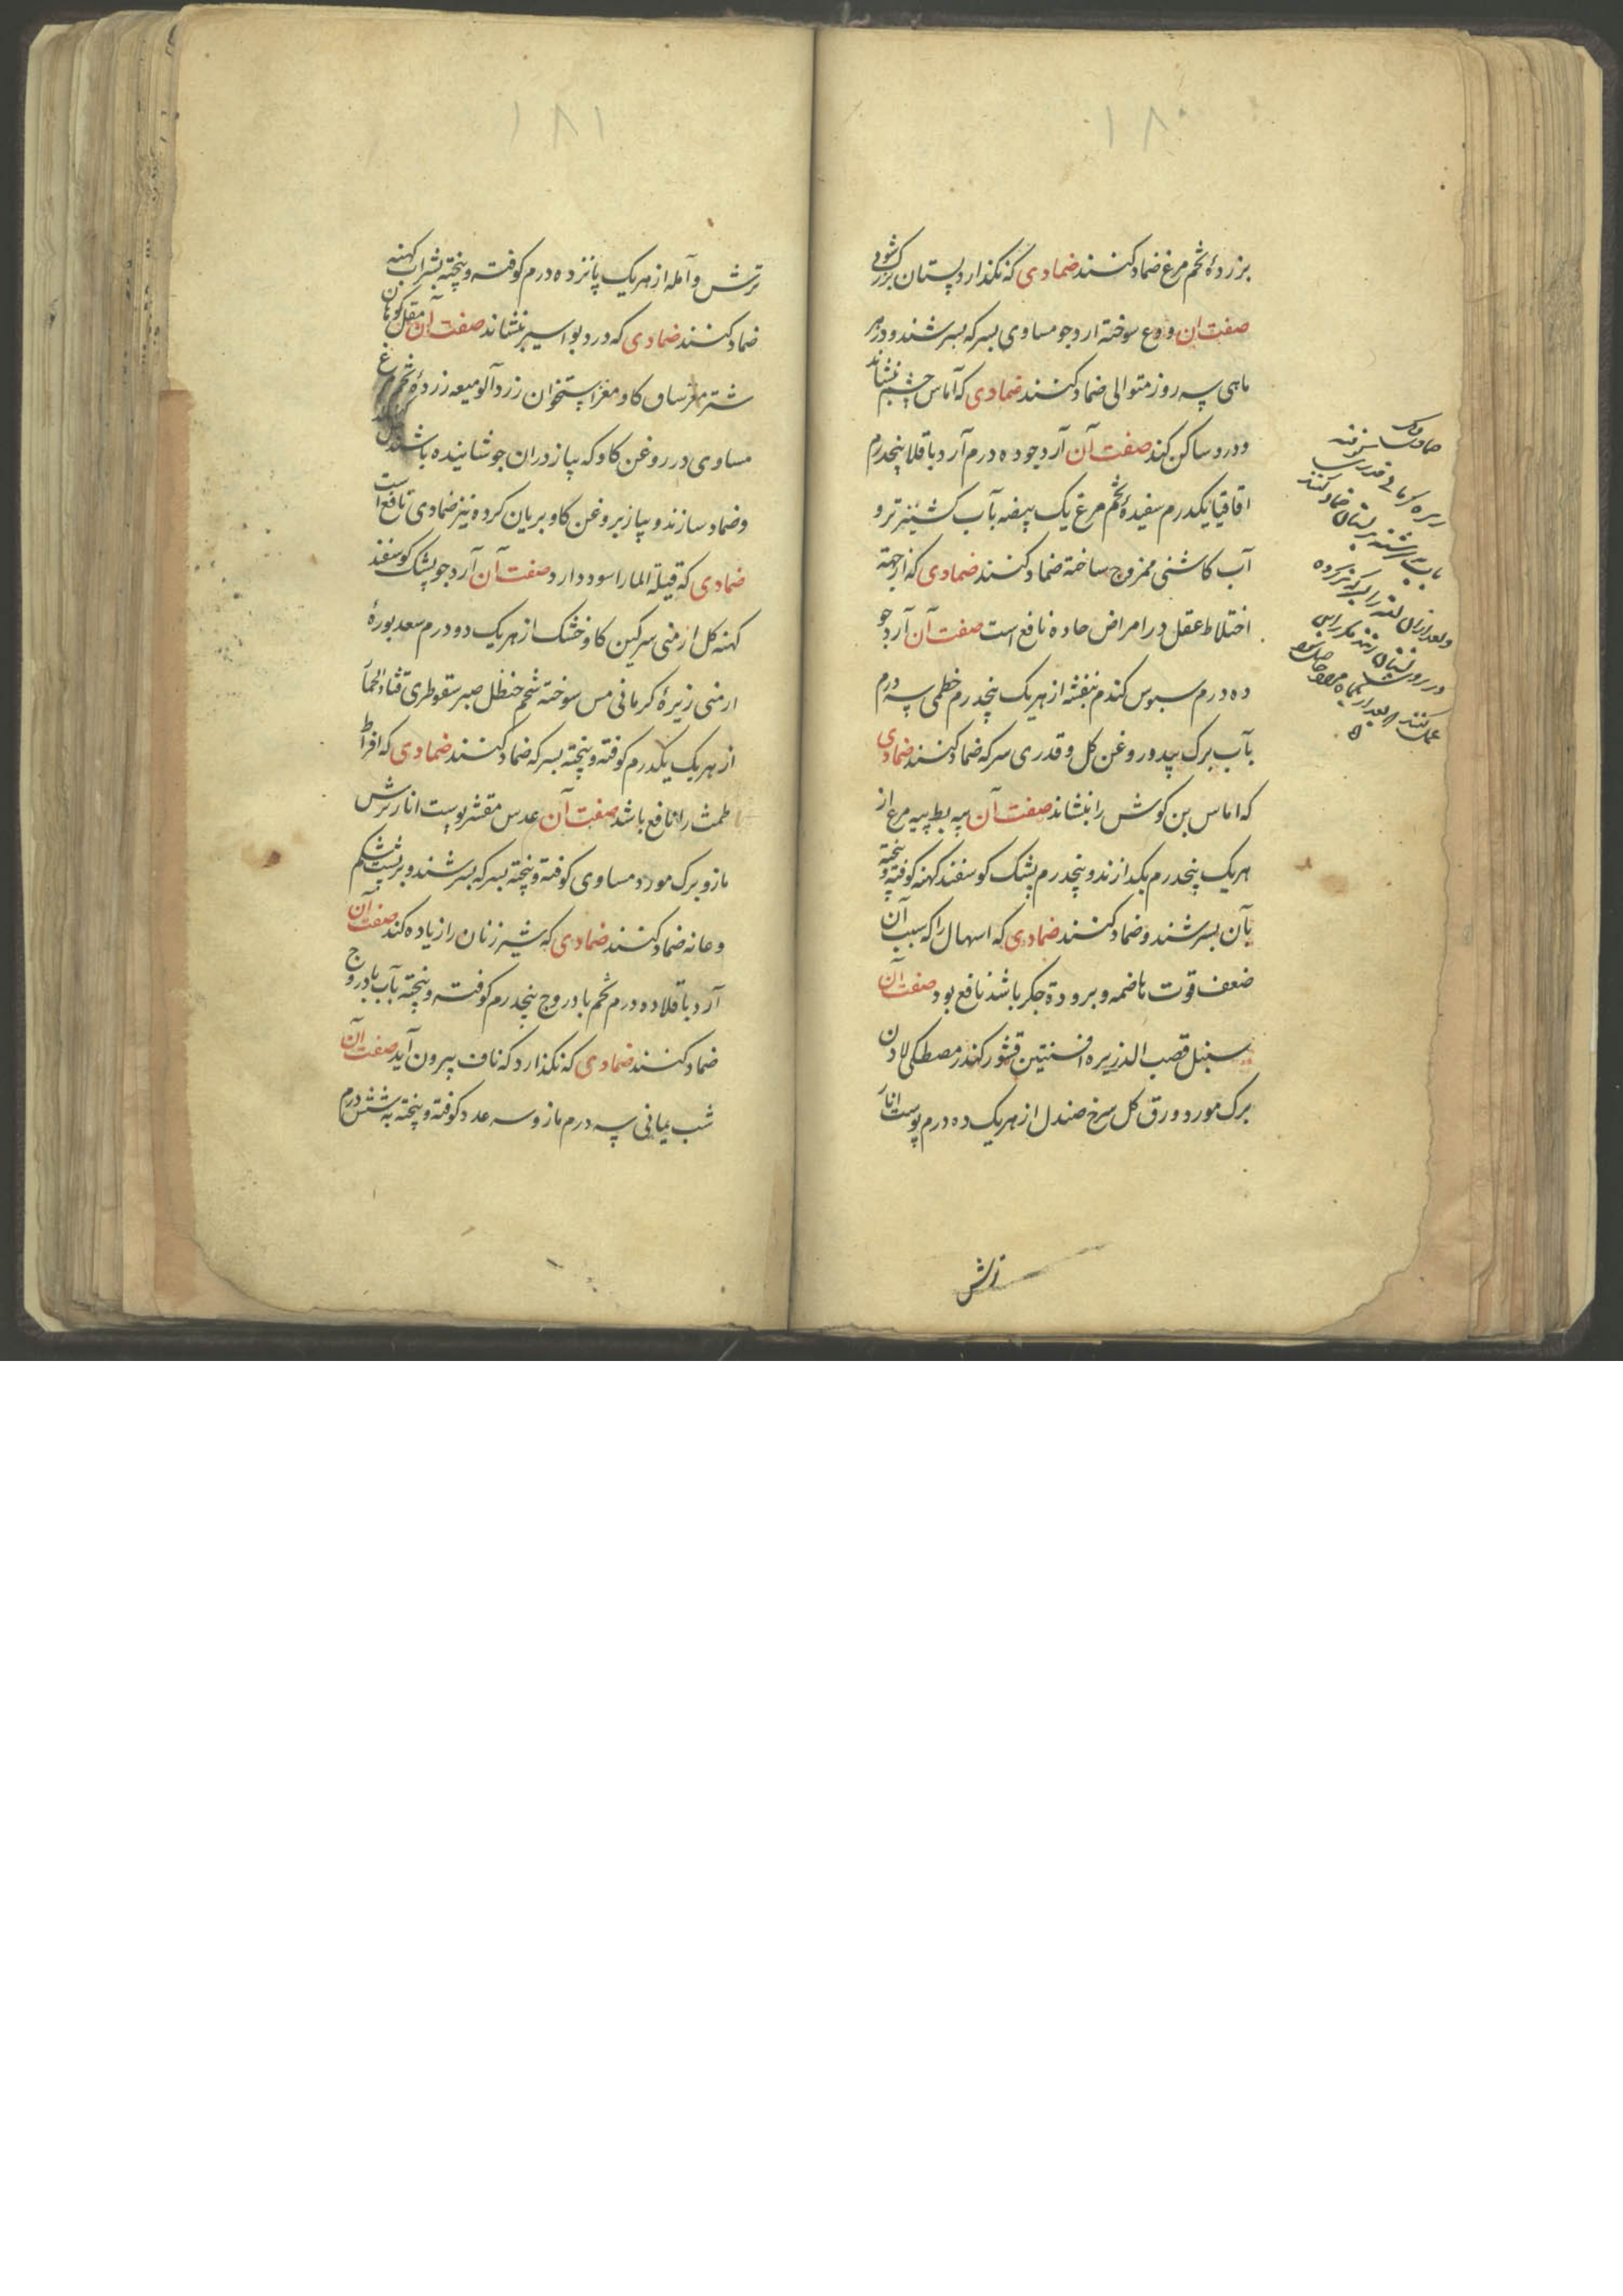 ۱۸۰
بزردهٔ تخم مرغ ضماد کنند ضمادی که نکذارد پستان بزرک شود
صفت آن ودع سوخته ارد جو مساوی بسرکه بسرشند و در هر
ماهی سه روز متوالی ضماد کنند ضمادی که آماس چشم بنشاند
و درد ساکن کند صفت آن آرد جو ده درم آرد باقلا پنجدرم
اقاقیا یکدرم سفیدهٔ تخم مرغ یک بیضه بآب کشنیز تر و
آب کاشنی ممزوج ساخته ضماد کنند ضمادی که از جهة
اختلاط عقل در امراض حاده نافع است صفت آن آرد جو
ده درم سبوس کندم بنفشه از هریک پنجدرم خطمی سه درم
بآب برک بید و روغن کل و قدری سرکه ضماد کنند ضمادی
که اماس بن کوش را بنشاند صفت آن پیه بط پیه مرغ از
هریک پنجدرم بکدازند و پنجدرم پشک کوسفند کهنه کوفته و پخته
بآن بسرشند و ضماد کنند ضمادی که اسهال را که سبب آن
ضعف قوت هاضمه و برودة جکر باشد نافع بود صفت آن
سنبل قصب الذریره افسنتین قشور کندر مصطکی لادن
برک مورد ورق کل سرخ صندل از هریک ده درم پوست انار
ترش
زیره کرمانی قدری
بآب سرشته بپستان ضماد کنند
و بعد از آن
۱۸۱
ترش و آمله از هریک پانزده درم کوفته و پخته بشراب کهنه
ضماد کنند ضمادی که درد بواسیر بنشاند صفت آن مقل کوهان
شتر مغز ساق کاو مغز استخوان زردآلو میعه زردهٔ تخم مرغ
مساوی در روغن کاو که پیاز در ان جوشانیده باشند
و ضماد سازند و پیاز بروغن کاو بریان کرده نیز ضمادی نافع است
ضمادی که قیلة الما را سود دارد صفت آن آرد جو پشک کوسفند
کهنه کل ارمنی سرکین کاو خشک از هریک دو درم سعد بورهٔ
ارمنی زیرهٔ کرمانی مس سوخته شحم حنظل صبر سقوطری قثاء الحمار
از هریک یکدرم کوفته و پخته بسرکه ضماد کنند ضمادی که افراط
طمث را نافع باشد صفت آن عدس مقشر پوست انار ترش
مازو برک مورد مساوی کوفته و پخته بسرکه بسرشند و بر پشت و شکم
و عانه ضماد کنند ضمادی که شیر زنان را زیاده کند صفت آن
آرد باقلا ده درم تخم بادروج پنجدرم کوفته و پخته بآب بادروج
ضماد کنند ضمادی که نکذارد که ناف بیرون آید صفت آن
شب یمانی سه درم مازو سه عدد کوفته و پخته به شش درم